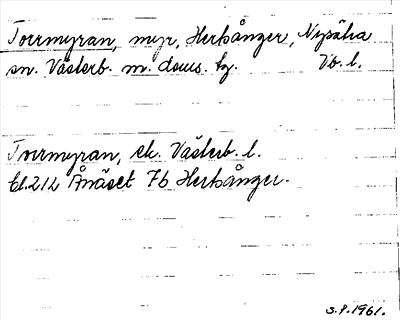 Torrmyran, myr, Herrsånger, Nysätra
sn. Västerb. m. doms. bg. Vb. l.
Torrmyran, ek. Västerb. l.
bl. 212 Ånäset 7b Herrsånger.
3.9.1961.